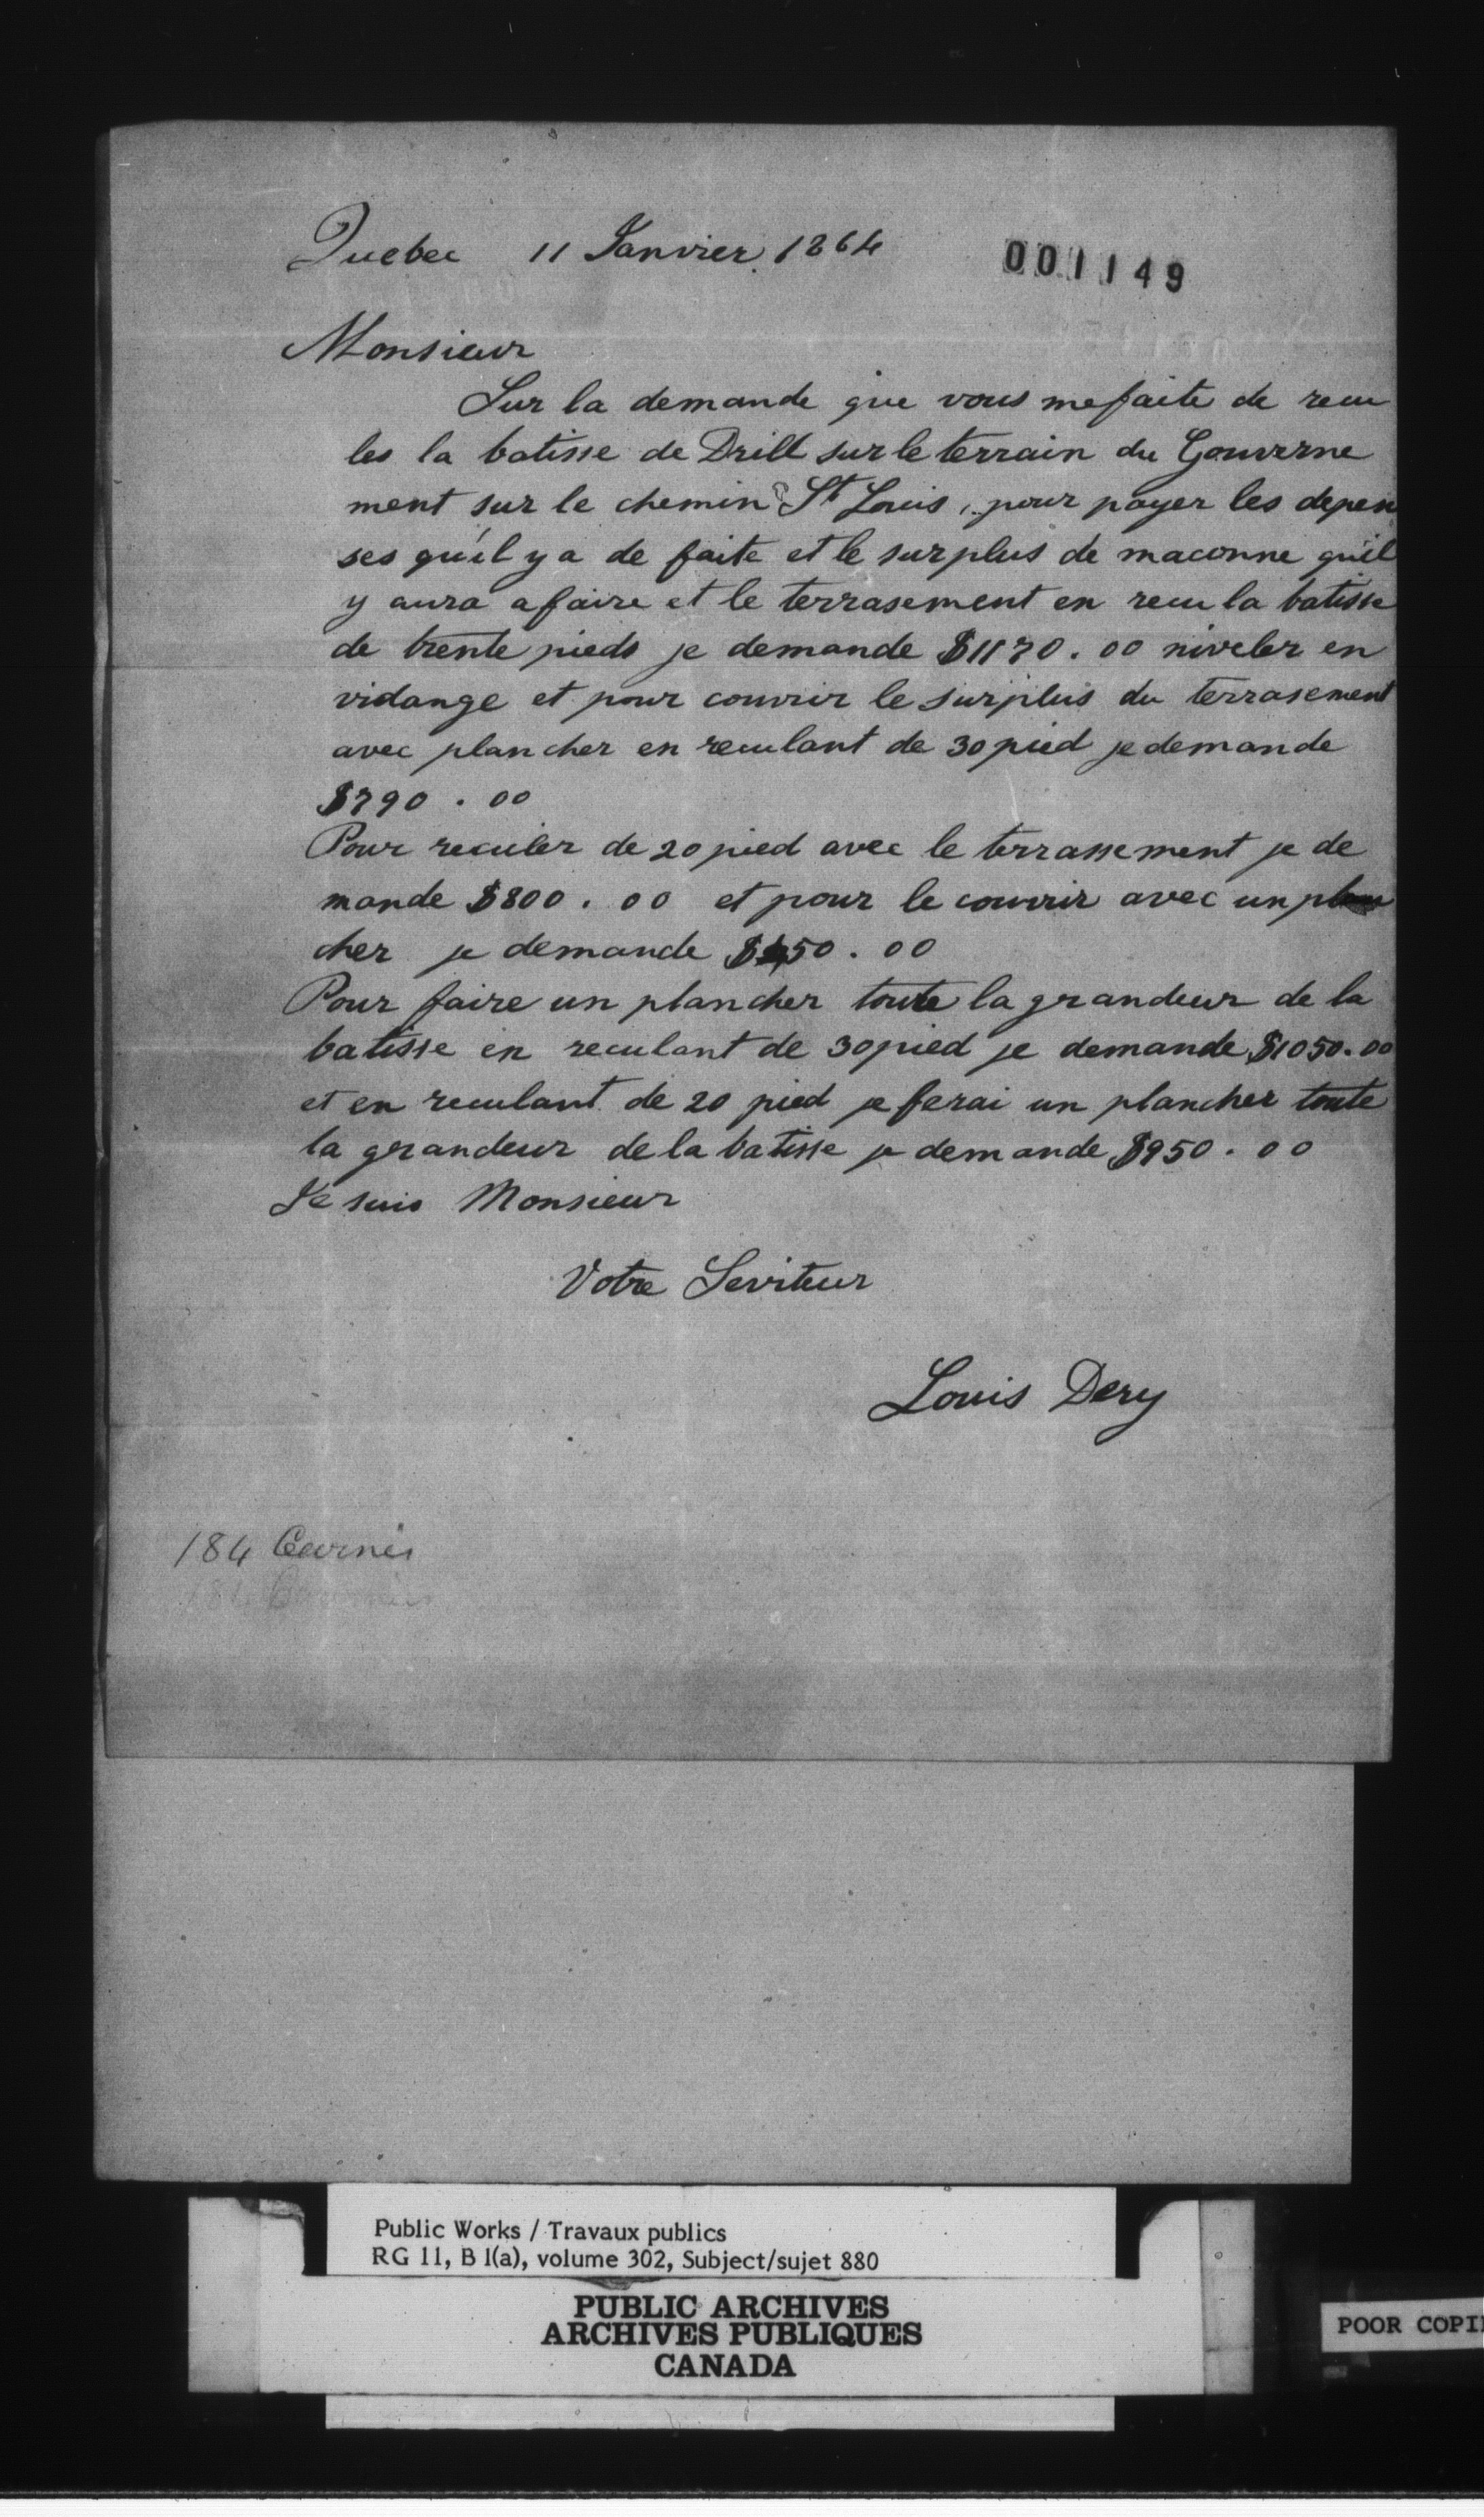 Quebec 11 Janvier 1864
001149
Monsieur
Sur la demande que vous me faite de recu
les la batisse de Drill sur le terrain du Gouverne
ment sur le chemin St Louis, pour payer les depen
ses qu'il y a de faite et le surplus de maconne qu'il
y aura a faire et le terrasement en recu la batisse
de trente pieds je demande $1170.00 niveler en
vidange et pour couvrir le surplus du terrasement
avec plancher en reculant de 30 pied je demande
$790.00
Pour reculer de 20 pied avec le terrassement je de
mande $800.00 et pour le couvrir avec un plan
cher je demande
Pour faire un plancher toute la grandeur de la
batisse en reculant de 30 pied je demande $1050.00
et en reculant de 20 pied je ferai un plancher toute
la grandeur de la batisse je demande $950.00
Je suis Monsieur
Votre Seviteur
Louis Dery
184
Public Works / Travaux publics
RG 11, B 1(a), volume 302, Subject/sujet 880
PUBLIC ARCHIVES
ARCHIVES PUBLIQUES
CANADA
POOR COPI